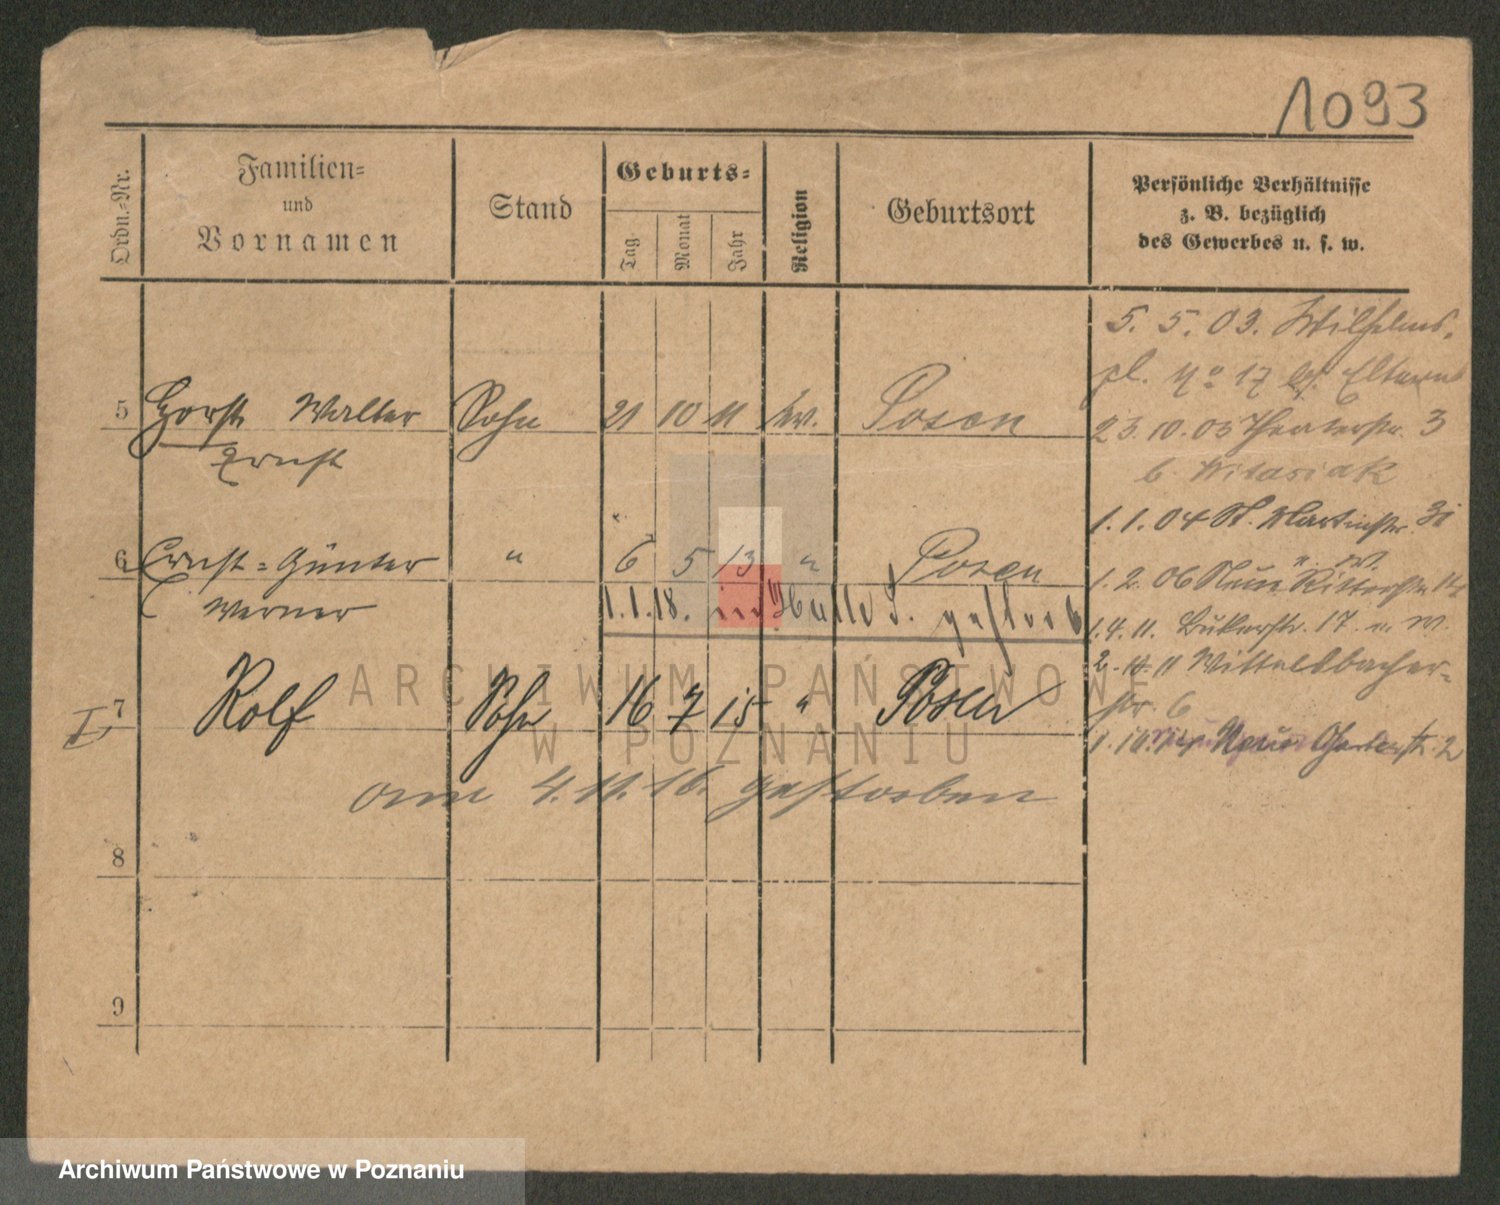 1093
Ordn.-Nr.
Familien-
und
Vornamen
Stand
Geburts-
Tag
Monat
Jahr
Religion
Geburtsort
Persönliche Verhältnisse
z. B. bezüglich
des Gewerbes u. s. w.
5 Horst Walter Sohn 21 10 11 ev. Posen
Ernst
6 Ernst-Günter " 6 5 13 " Posen
Werner
1.1.18. in Halle S. gestorb
7 Rolf Sohn 16 7 15 " Posen
am 4.11.16. gestorben
8
9
5. 5. 03. Wilhelms-
pl. No 17 b/ Eltern
23.10.03 Theaterstr. 3
b Witasiak
1.1.04 St. Martinstr.
1.2.06 Neue Ritterstr.
1.4.11. Bukerstr. 17. u. W.
2. 11 Wittelsbacher-
str. 6
1.10. Neue Gartenstr. 2
ARCHIWUM PAŃSTWOWE
W POZNANIU
Archiwum Państwowe w Poznaniu